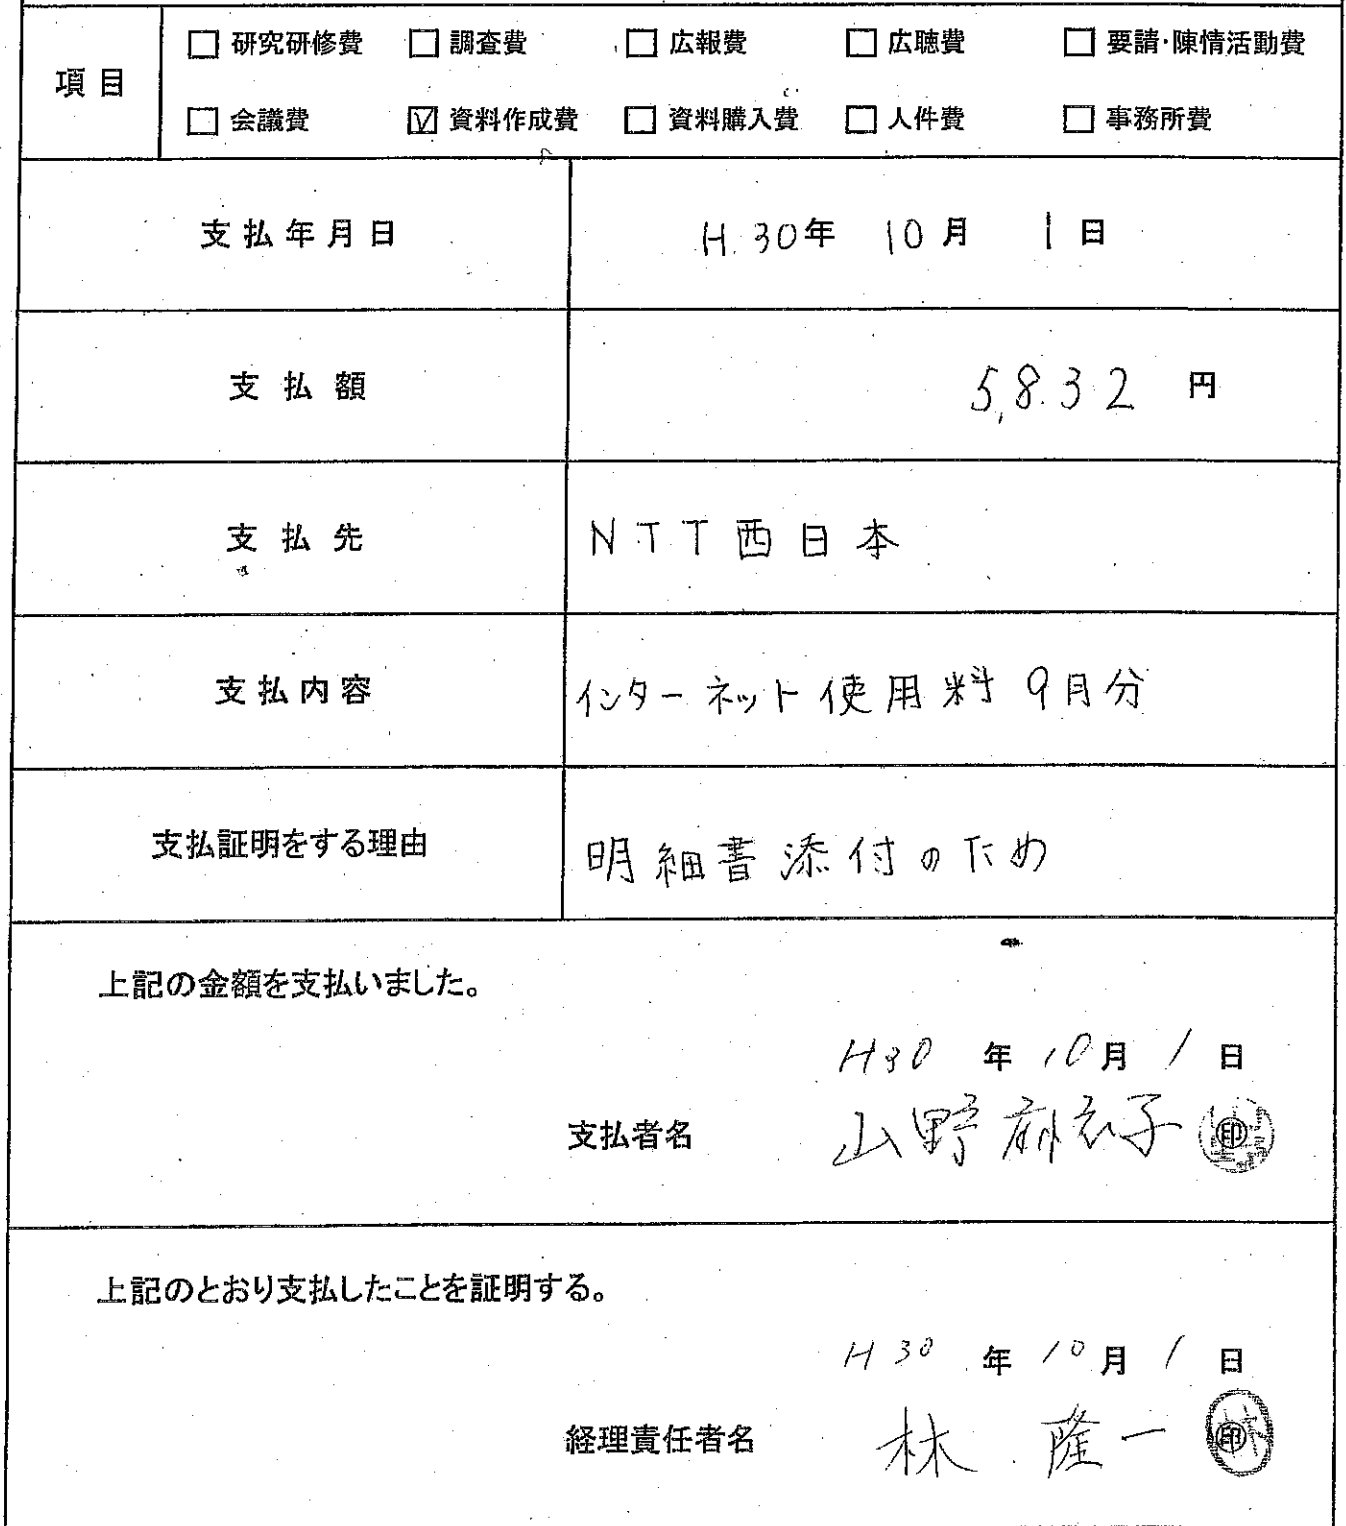 □ 研究研修費 □ 調査費 □ 広報費 □ 広聴費 □ 要請・陳情活動費
項目
□ 会議費 ☑ 資料作成費 □ 資料購入費 □ 人件費 □ 事務所費
支払年月日 H.30年 10月 1日
支払額 5,832 円
支払先 NTT西日本
支払内容 インターネット使用料 9月分
支払証明をする理由 明細書添付のため
上記の金額を支払いました。
H30 年 10月 1 日
支払者名 山野麻衣子 印
上記のとおり支払したことを証明する。
H30 年 10月 1 日
経理責任者名 林 隆一 印